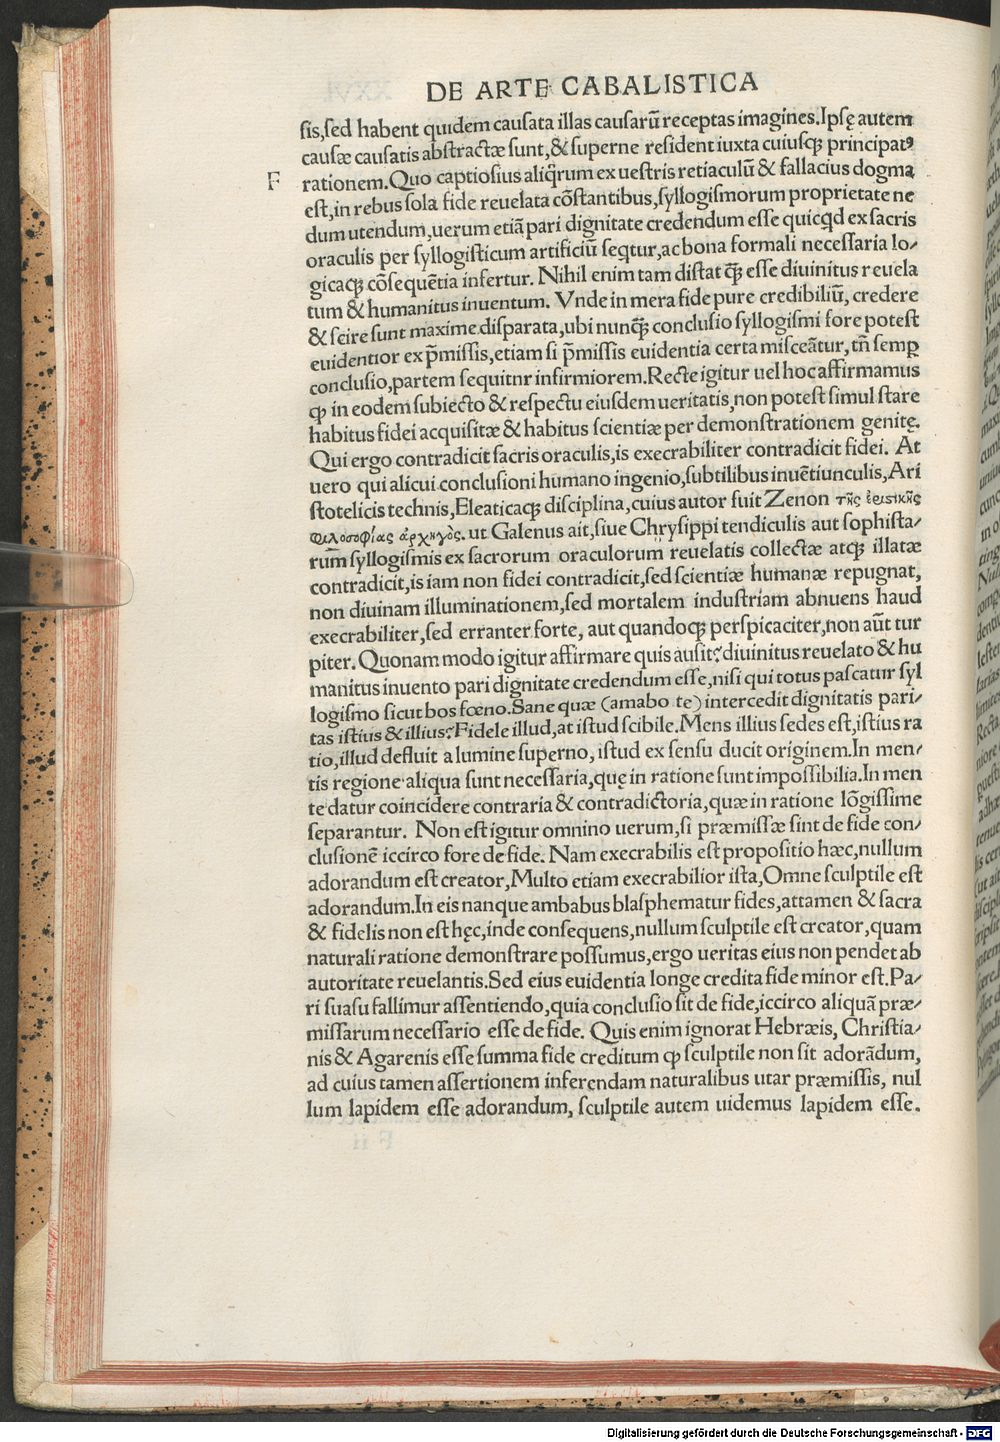 DE ARTE CABALISTICA
sis,sed habent quidem causata illas causarũ receptas imagines.Ipsę autem
causæ causatis abstractæ sunt,& superne resident iuxta cuiusqȝ principatꝰ
F rationem.Quo captiosius aliq̃rum ex uestris retiaculũ & fallacius dogma
est,in rebus sola fide reuelata cõstantibus,syllogismorum proprietate ne
dum utendum,uerum etiã pari dignitate credendum esse quicq̣d ex sacris
oraculis per syllogisticum artificiũ seq̣tur,ac bona formali necessaria lo/
gicaqȝ cõsequẽtia infertur. Nihil enim tam distat q̃ȝ esse diuinitus reuela
tum & humanitus inuentum. Vnde in mera fide pure credibiliũ, credere
& scire sunt maxime disparata,ubi nunq̃ȝ conclusio syllogismi fore potest
euidentior ex p̃missis,etiam si p̃missis euidentia certa misceãtur,tñ semꝑ
conclusio,partem sequitnr infirmiorem.Recte igitur uel hoc affirmamus
ꝙ in eodem subiecto & respectu eiusdem ueritatis,non potest simul stare
habitus fidei acquisitæ & habitus scientiæ per demonstrationem genitę.
Qui ergo contradicit sacris oraculis,is execrabiliter contradicit fidei. At
uero qui alicui conclusioni humano ingenio,subtilibus inuẽtiunculis,Ari
stotelicis technis,Eleaticaqȝ disciplina,cuius autor fuit Zenon τῆς ἐριστικῆς
φιλοσοφίας ἀρχηγὸς. ut Galenus ait,siue Chrysippi tendiculis aut sophista/
rum syllogismis ex sacrorum oraculorum reuelatis collectæ atqȝ illatæ
contradicit,is iam non fidei contradicit,sed scientiæ humanæ repugnat,
non diuinam illuminationem,sed mortalem industriam abnuens haud
execrabiliter,sed erranter forte, aut quandoqȝ perspicaciter,non aũt tur
piter.Quonam modo igitur affirmare quis ausit?diuinitus reuelato & hu
manitus inuento pari dignitate credendum esse,nisi qui totus pascatur syl
logismo sicut bos fœno.Sane quæ (amabo te) intercedit dignitatis pari/
tas istius & illius?Fidele illud,at istud scibile.Mens illius sedes est,istius ra
tio,illud defluit a lumine superno, istud ex sensu ducit originem.In men/
tis regione aliqua sunt necessaria,quę in ratione sunt impossibilia.In men
te datur coincidere contraria & contradictoria,quæ in ratione lõgissime
separantur. Non est igitur omnino uerum,si præmissæ sint de fide con/
clusionẽ iccirco fore de fide. Nam execrabilis est propositio hæc,nullum
adorandum est creator,Multo etiam execrabilior ista,Omne sculptile est
adorandum.In eis nanque ambabus blasphematur fides,attamen & sacra
& fidelis non est hęc,inde consequens,nullum sculptile est creator,quam
naturali ratione demonstrare possumus,ergo ueritas eius non pendet ab
autoritate reuelantis.Sed eius euidentia longe credita fide minor est.Pa/
ri suasu fallimur assentiendo,quia conclusio sit de fide,iccirco aliquã præ/
missarum necessario esse de fide. Quis enim ignorat Hebræis, Christia/
nis & Agarenis esse summa fide creditum ꝙ sculptile non sit adorãdum,
ad cuius tamen assertionem inferendam naturalibus utar præmissis, nul
lum lapidem esse adorandum, sculptile autem uidemus lapidem esse.
Digitalisierung gefördert durch die Deutsche Forschungsgemeinschaft - DFG